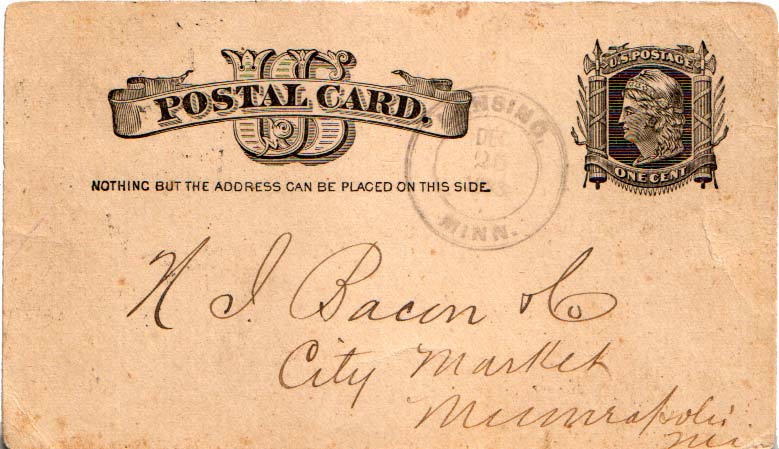 US
POSTAL CARD.
U.S. POSTAGE
ONE CENT
NOTHING BUT THE ADDRESS CAN BE PLACED ON THIS SIDE.
DEC
26
MINN.
N J Bacon & Co
City Market
Minneapolis
Minn